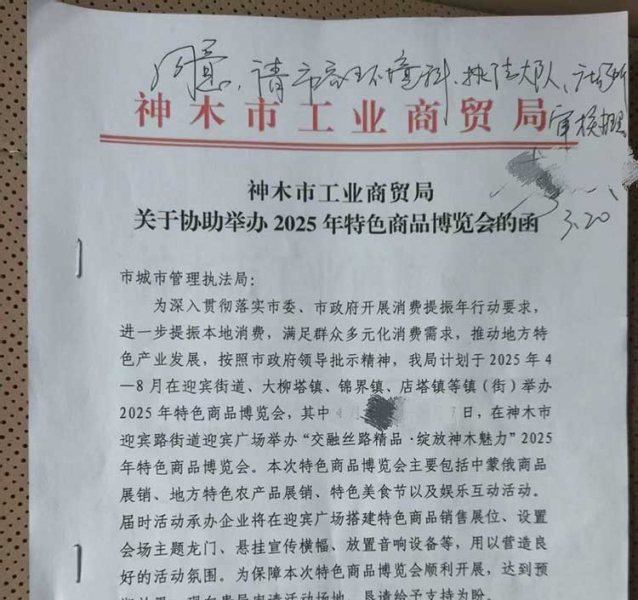 同意，请市容环境科、执法大队、
审核办理
神木市工业商贸局
3.20
神木市工业商贸局
关于协助举办 2025 年特色商品博览会的函
市城市管理执法局：
为深入贯彻落实市委、市政府开展消费提振年行动要求，
进一步提振本地消费，满足群众多元化消费需求，推动地方特
色产业发展，按照市政府领导批示精神，我局计划于 2025 年 4
—8 月在迎宾街道、大柳塔镇、锦界镇、店塔镇等镇（街）举办
2025 年特色商品博览会，其中 4 月
，在神木市
迎宾路街道迎宾广场举办“交融丝路精品·绽放神木魅力”2025
年特色商品博览会。本次特色商品博览会主要包括中蒙俄商品
展销、地方特色农产品展销、特色美食节以及娱乐互动活动。
届时活动承办企业将在迎宾广场搭建特色商品销售展位、设置
会场主题龙门、悬挂宣传横幅、放置音响设备等，用以营造良
好的活动氛围。为保障本次特色商品博览会顺利开展，达到预
期效果，现向贵局申请活动场地，恳请给予支持为盼。